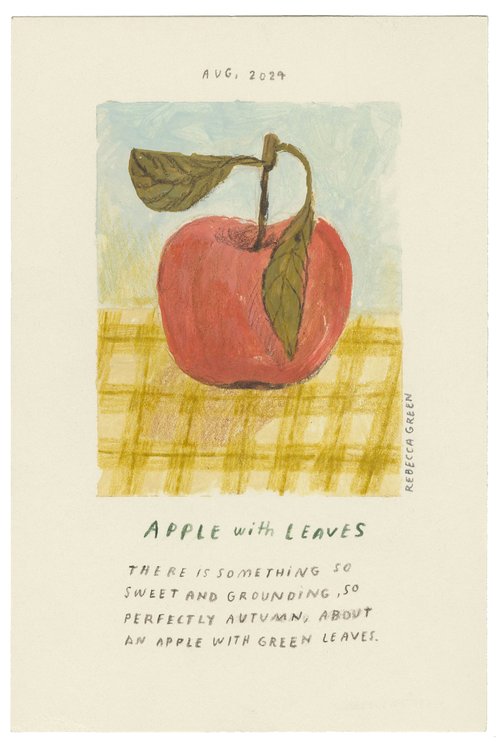 AUG, 2024
REBECCA GREEN
APPLE with LEAVES
THERE IS SOMETHING SO
SWEET AND GROUNDING, SO
PERFECTLY AUTUMN, ABOUT
AN APPLE WITH GREEN LEAVES.